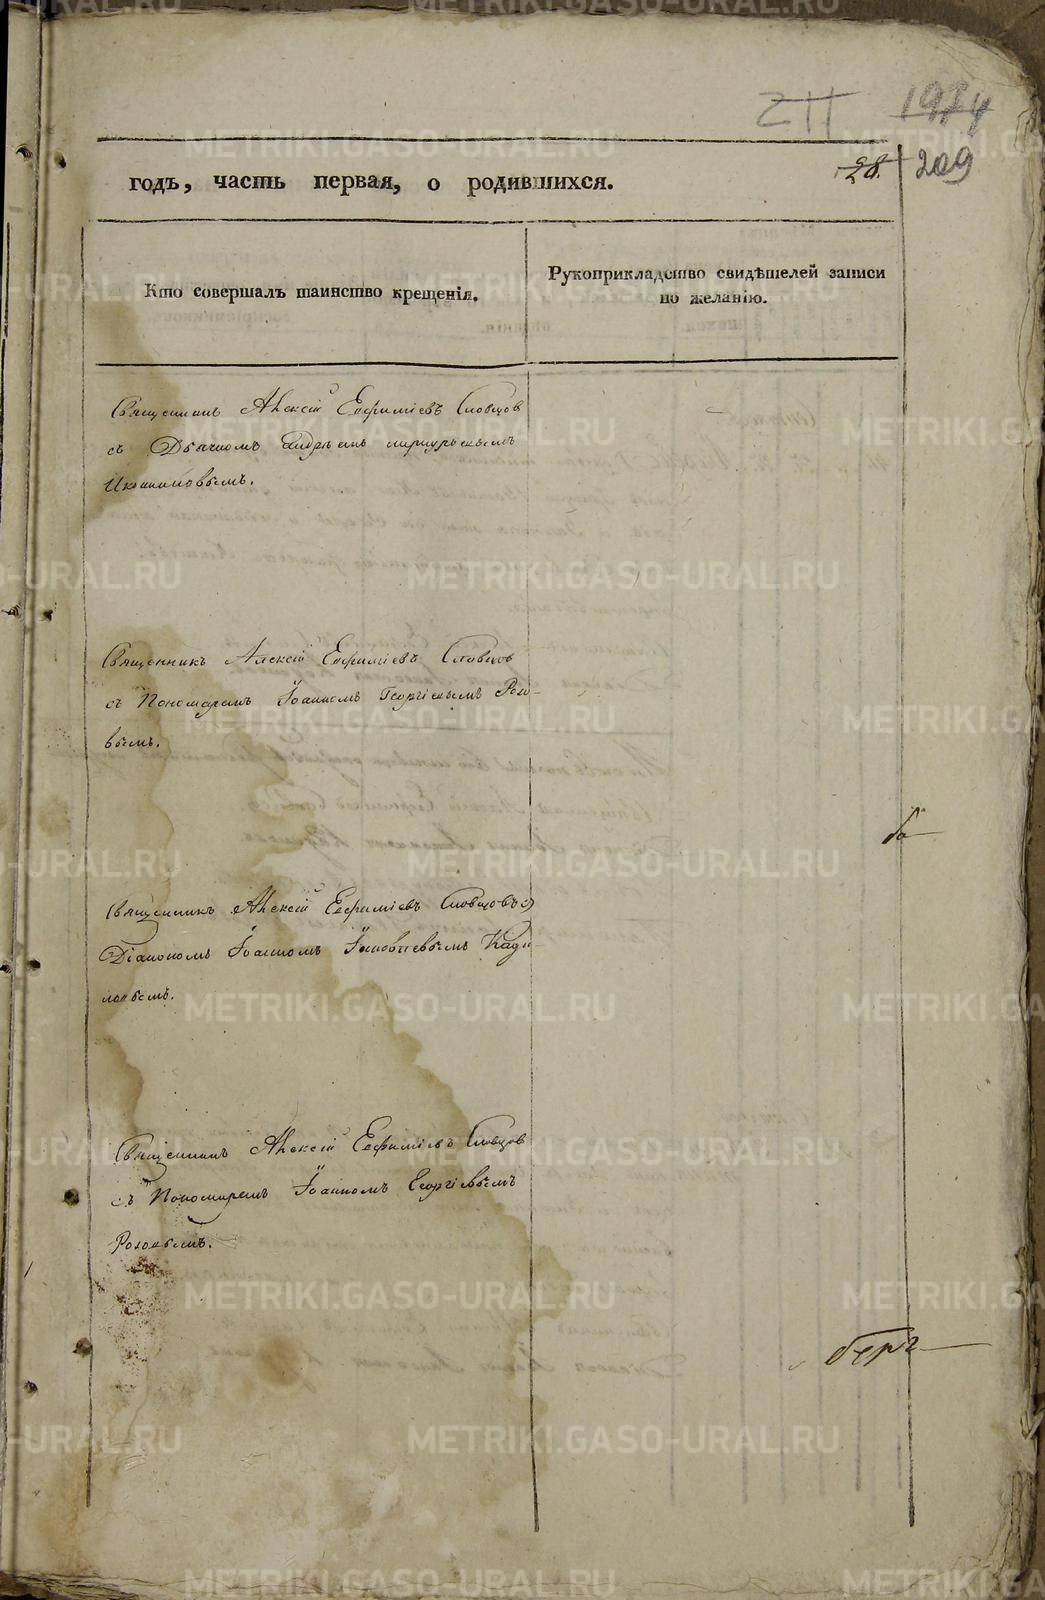 211 1974
годъ, часть первая, о родившихся. 28. 209
Кто совершалъ таинство крещенія.
Рукоприкладство свидѣтелей записи
по желанію.
Священникъ Алексій Евфиміевъ Словцов
съ Дьячкомъ Андрѣемъ
Священникъ Алексій Евфиміевъ Словцов
съ Пономаремъ Іоанномъ Георгіевымъ
вымъ.
Священникъ Алексій Евфиміевъ Словцовъ с
Діакономъ Іоанномъ Іаковлевымъ Кади-
ловымъ.
Священникъ Алексій Евфиміевъ Словцов
съ Пономаремъ Іоанномъ Георгіевымъ
METRIKI.GASO-URAL.RU